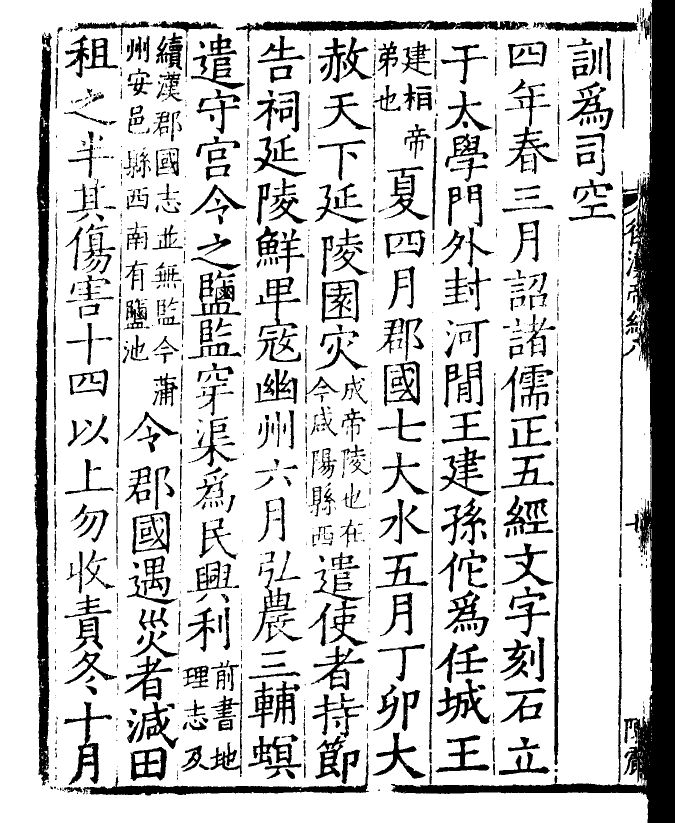 後漢帝紀八
訓爲司空
四年春三月詔諸儒正五經文字刻石立
于太學門外封河閒王建孫佗爲任城王
建桓帝
弟也
夏四月郡國七大水五月丁卯大
赦天下延陵園灾
成帝陵也在
今咸陽縣西
遣使者持節
告祠延陵鮮卑寇幽州六月弘農三輔螟
遣守宮令之鹽監穿渠爲民興利
前書地
理志及
續漢郡國志並無監今蒲
州安邑縣西南有鹽池
令郡國遇災者減田
租之半其傷害十四以上勿收責冬十月